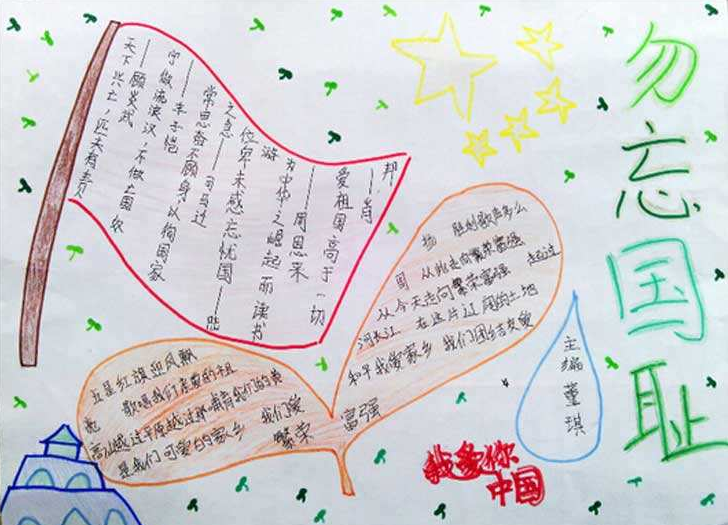 勿忘国耻
天下兴亡，匹夫有责
——顾炎武
宁做流浪汉，不做亡国奴
——丰子恺
常思奋不顾身，以徇国家
之急——司马迁
位卑未感忘忧国——陆
游
为中华之崛起而读书
——周恩来
爱祖国高于一切
——肖
邦
五星红旗迎风飘
扬 胜利歌声多么
歌唱我们亲爱的祖
国 从此走向繁荣富强
从今天走向繁荣富强 越过
高山越过平原越过奔腾的黄
河长江 在这片辽阔的土地
是我们可爱的家乡 我们爱
和平我爱家乡 我们团结友爱
繁荣 富强
主编董琪
我爱你
中国